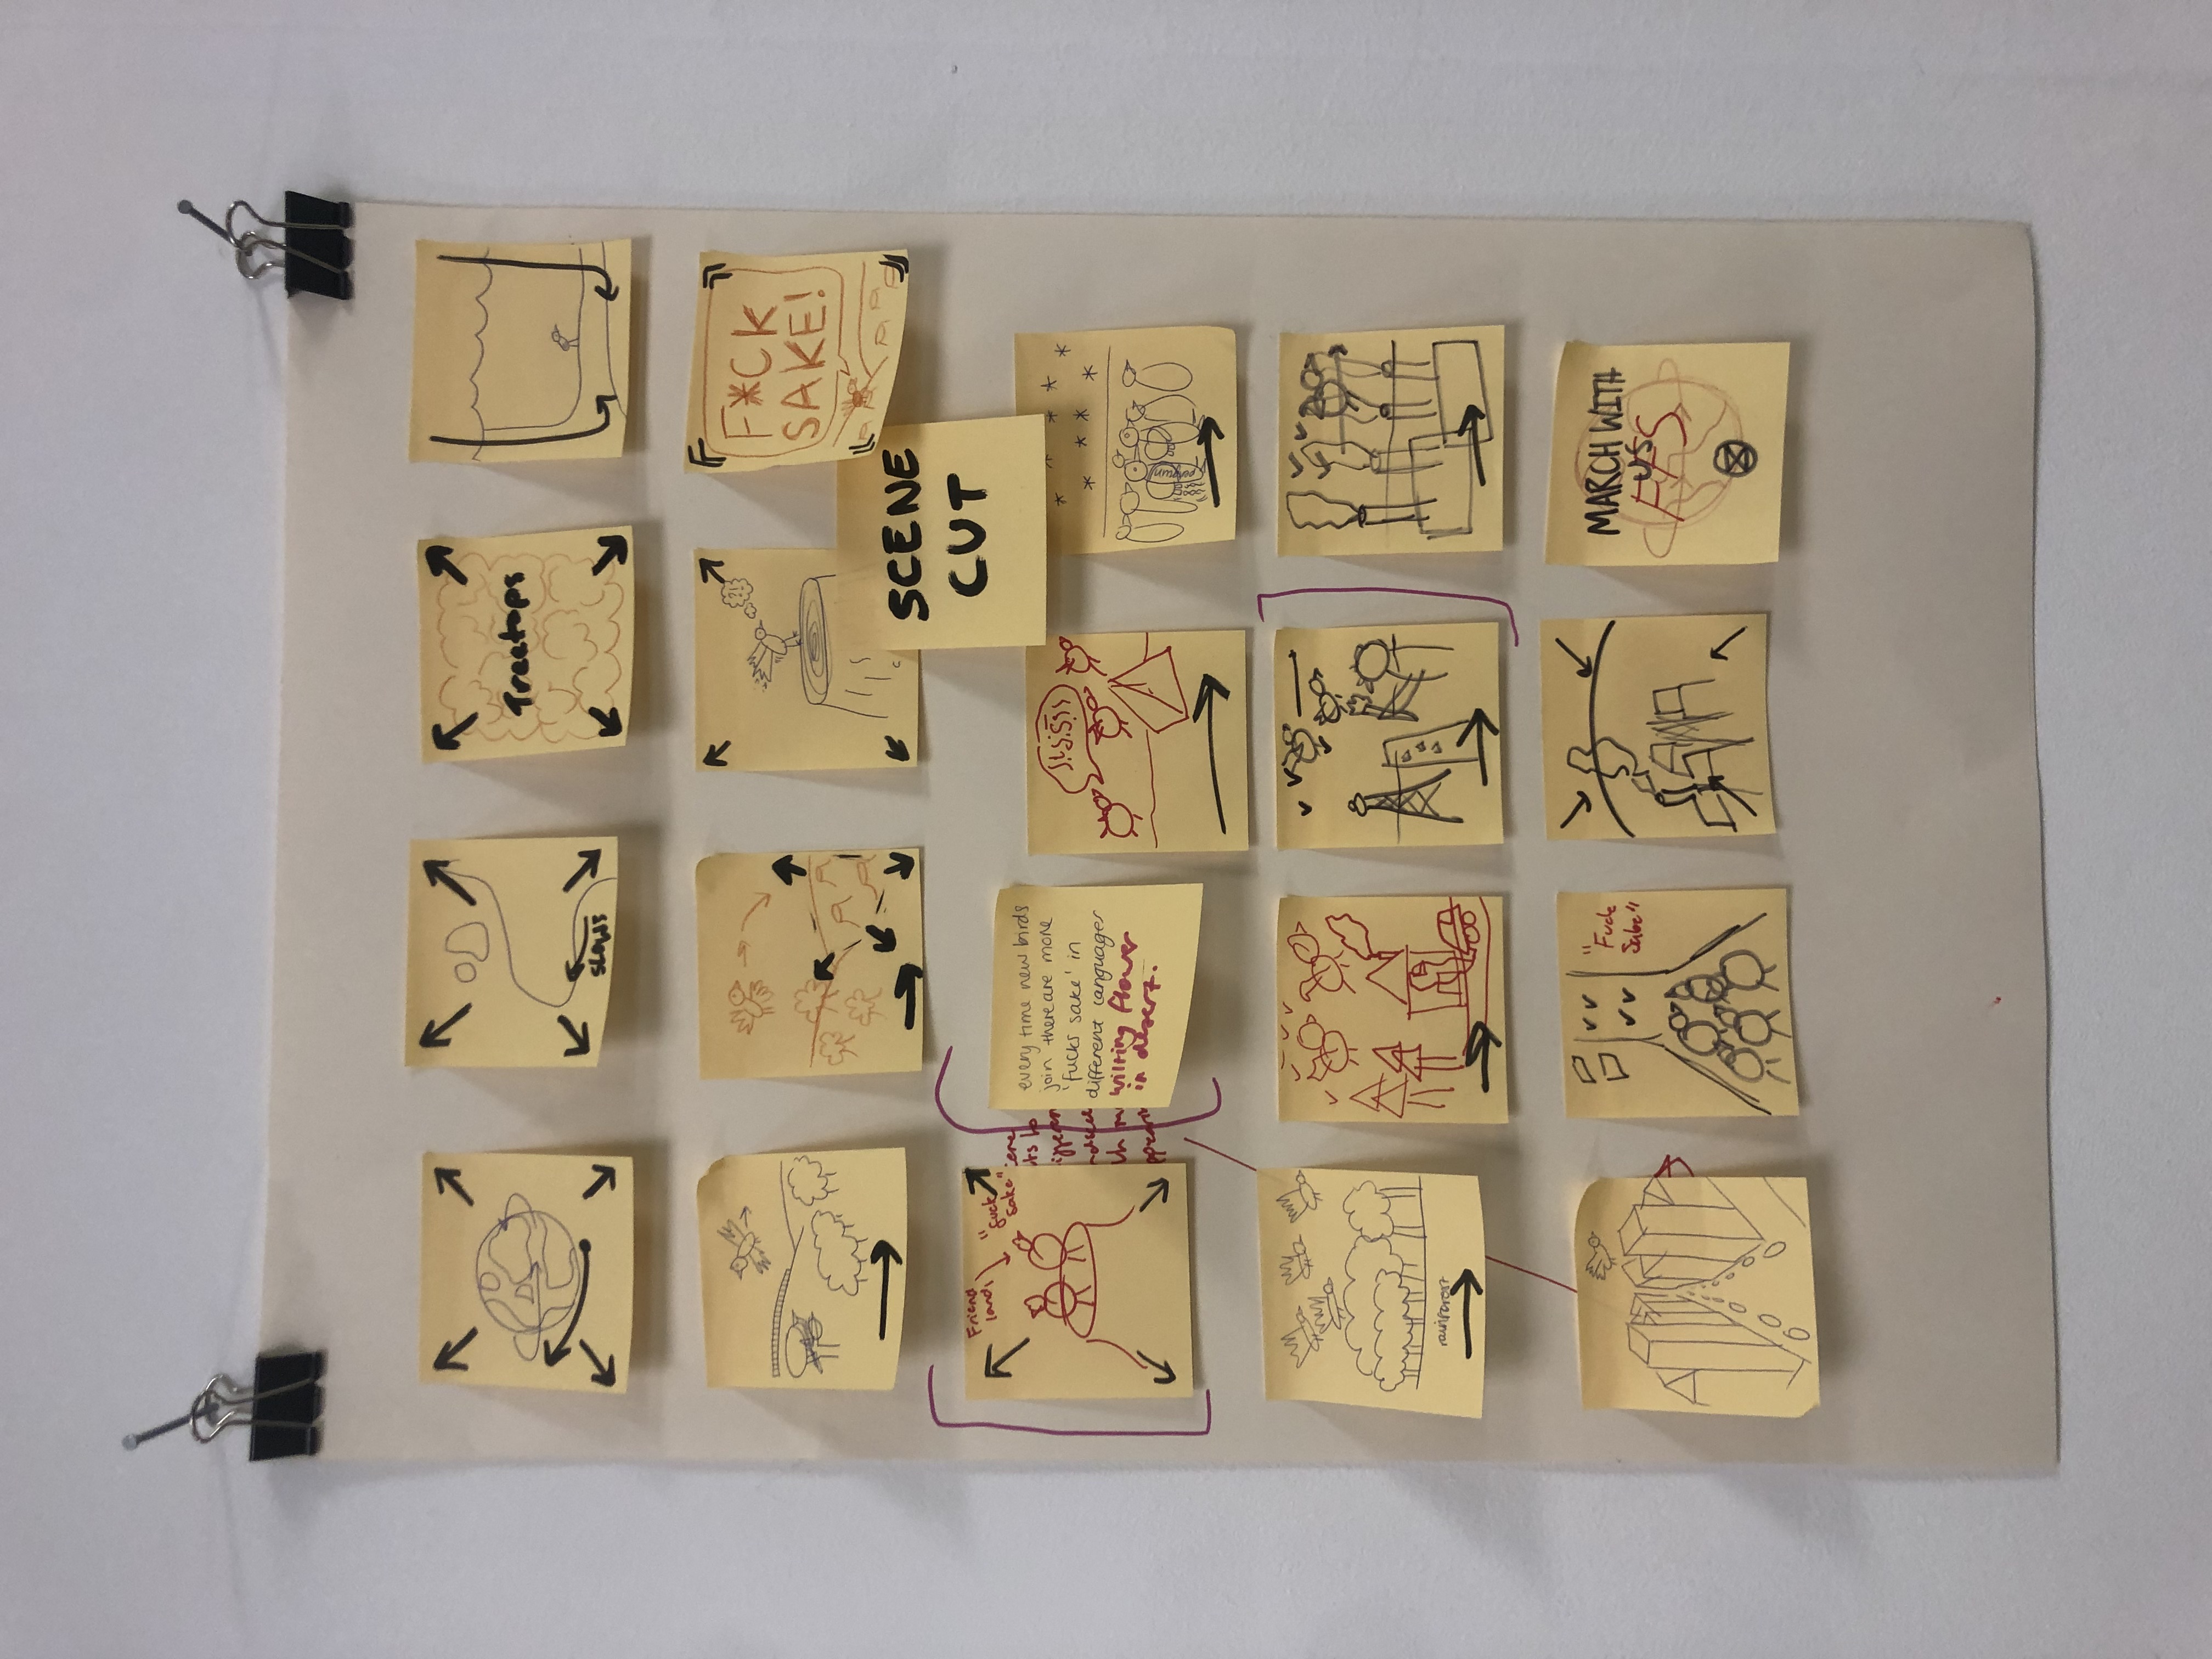 slows
Treetops
F*CK
SAKE!
SCENE
CUT
Friend
lands
"fuck
sake"
every time new birds
join there are more
'fucks sake' in
different languages
wilting flower
in desert.
penguin
rainforest
"Fuck
Sake"
MARCH WITH
US
FFS